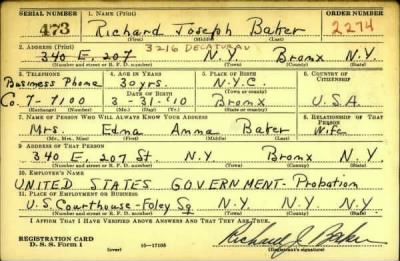 SERIAL NUMBER 1. NAME (Print) ORDER NUMBER
473 Richard Joseph Baker 2274
(First) (Middle) (Last)
2. ADDRESS (Print) 3216 DECATUR AV
340 E. 207 N.Y. Bronx N.Y.
(Number and street or R. F. D. number) (Town) (County) (State)
3. TELEPHONE 4. AGE IN YEARS 5. PLACE OF BIRTH 6. COUNTRY OF CITIZENSHIP
Business Phone 30 yrs. N.Y.C
DATE OF BIRTH (Town or county)
Co. 7-7100 3-31-10 Bronx U.S.A.
(Exchange) (Number) (Mo.) (Day) (Yr.) (State or country)
7. NAME OF PERSON WHO WILL ALWAYS KNOW YOUR ADDRESS 8. RELATIONSHIP OF THAT PERSON
Mrs. Edna Anna Baker Wife
(Mr., Mrs., Miss) (First) (Middle) (Last)
9. ADDRESS OF THAT PERSON
340 E. 207 St. N.Y. Bronx N.Y.
(Number and street or R. F. D. number) (Town) (County) (State)
10. EMPLOYER'S NAME
UNITED STATES GOVERNMENT - Probation
11. PLACE OF EMPLOYMENT OR BUSINESS
U.S. Courthouse - Foley Sq. N.Y. N.Y. N.Y.
(Number and street or R. F. D. number) (Town) (County) (State)
I AFFIRM THAT I HAVE VERIFIED ABOVE ANSWERS AND THAT THEY ARE TRUE.
REGISTRATION CARD
D. S. S. Form 1 (over) 16-17105 Richard J. Baker
(Registrant's signature)